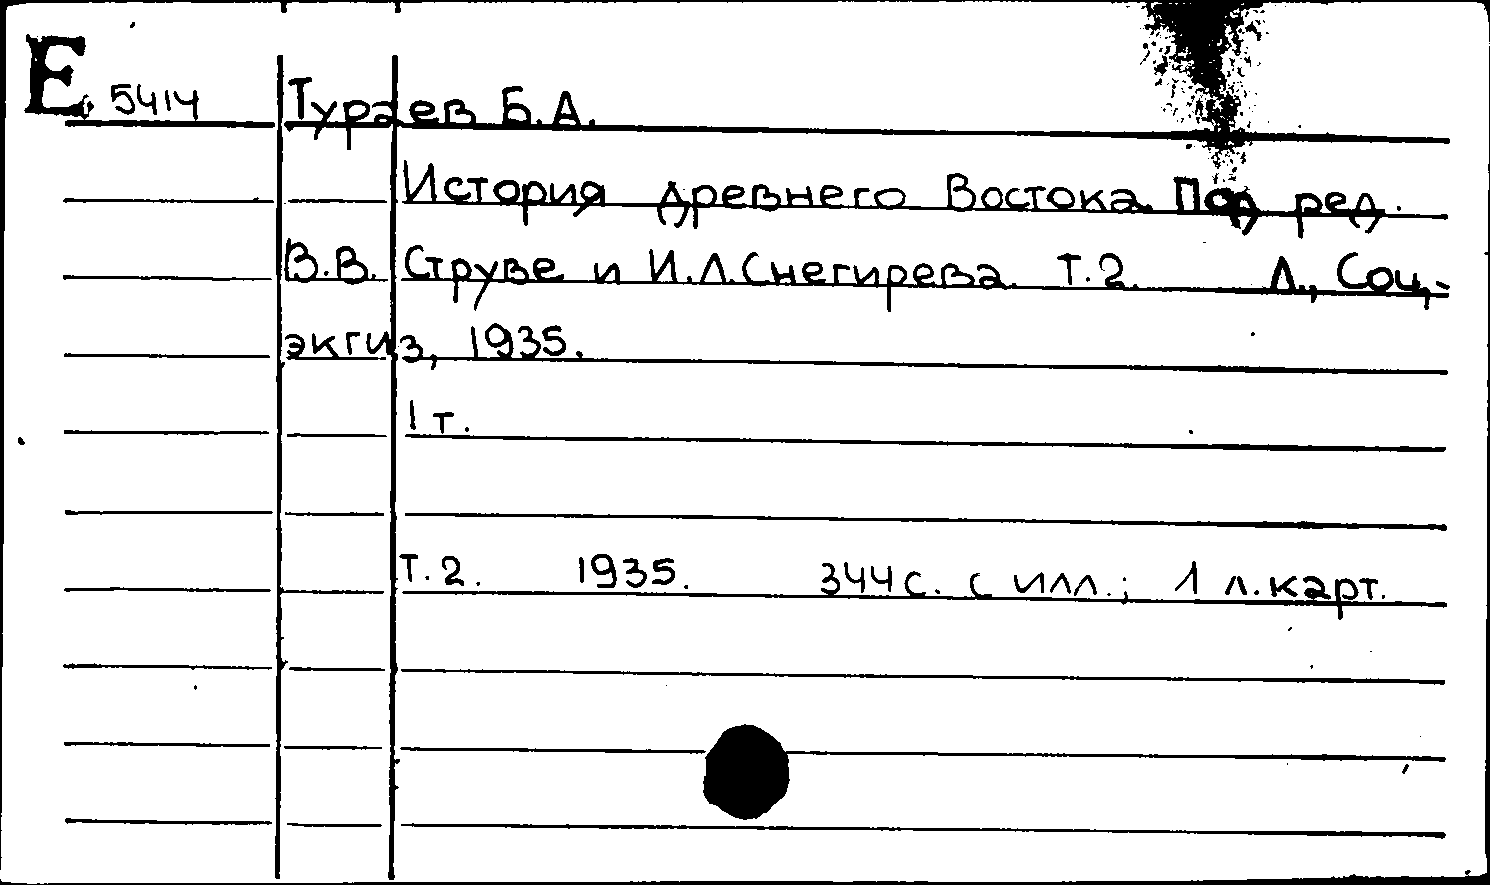 Е 5414 Тураев Б.А.
История древнего Востока. Под ред.
В.В. Струве и И.Л.Снегирева. Т.2. Л., Соц.-
экгиз, 1935.
1 т.
Т.2. 1935. 344с. с илл.; 1 л.карт.